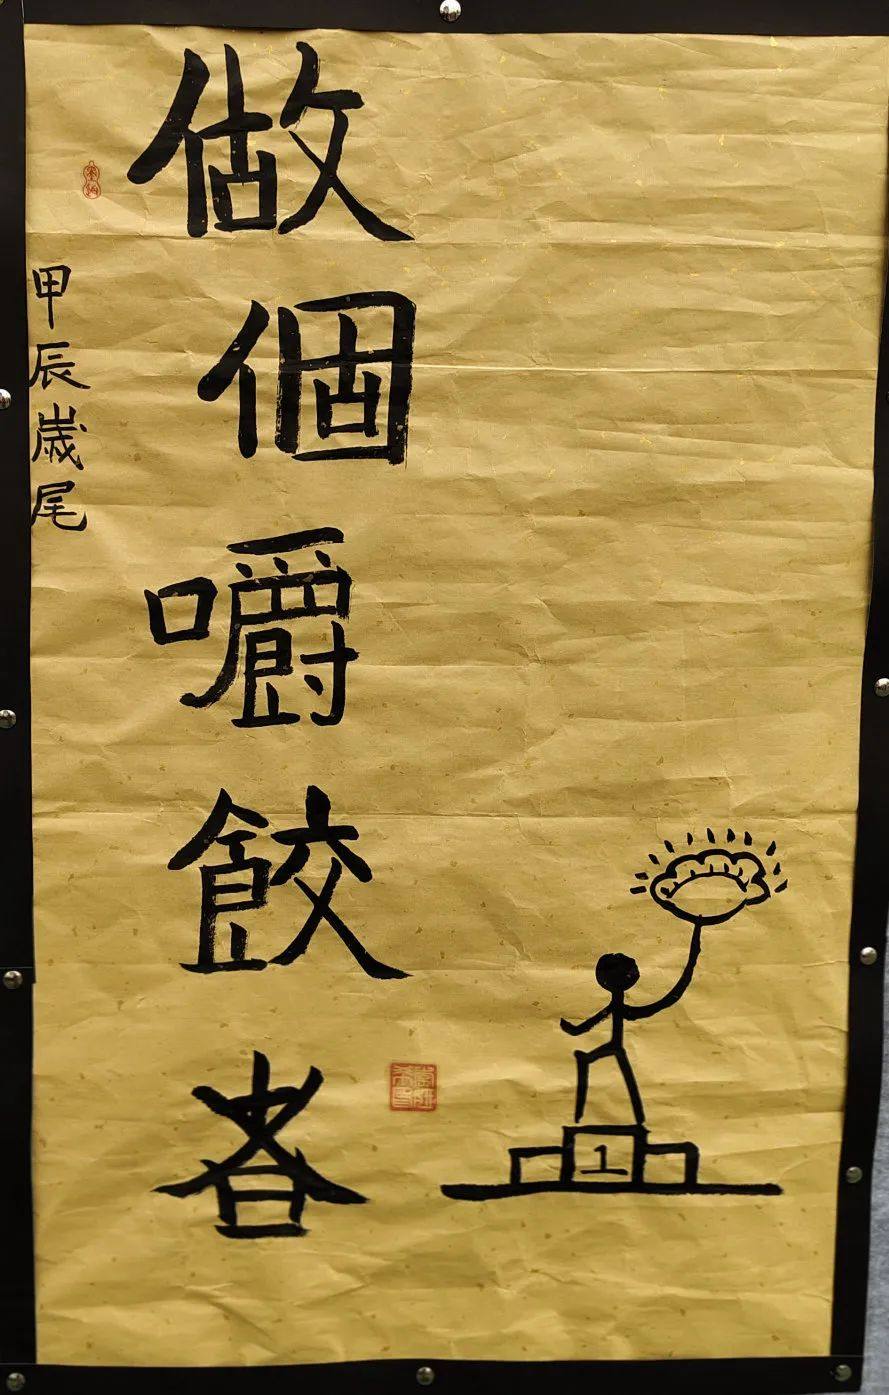 做個嚼餃者
甲辰歲尾
1